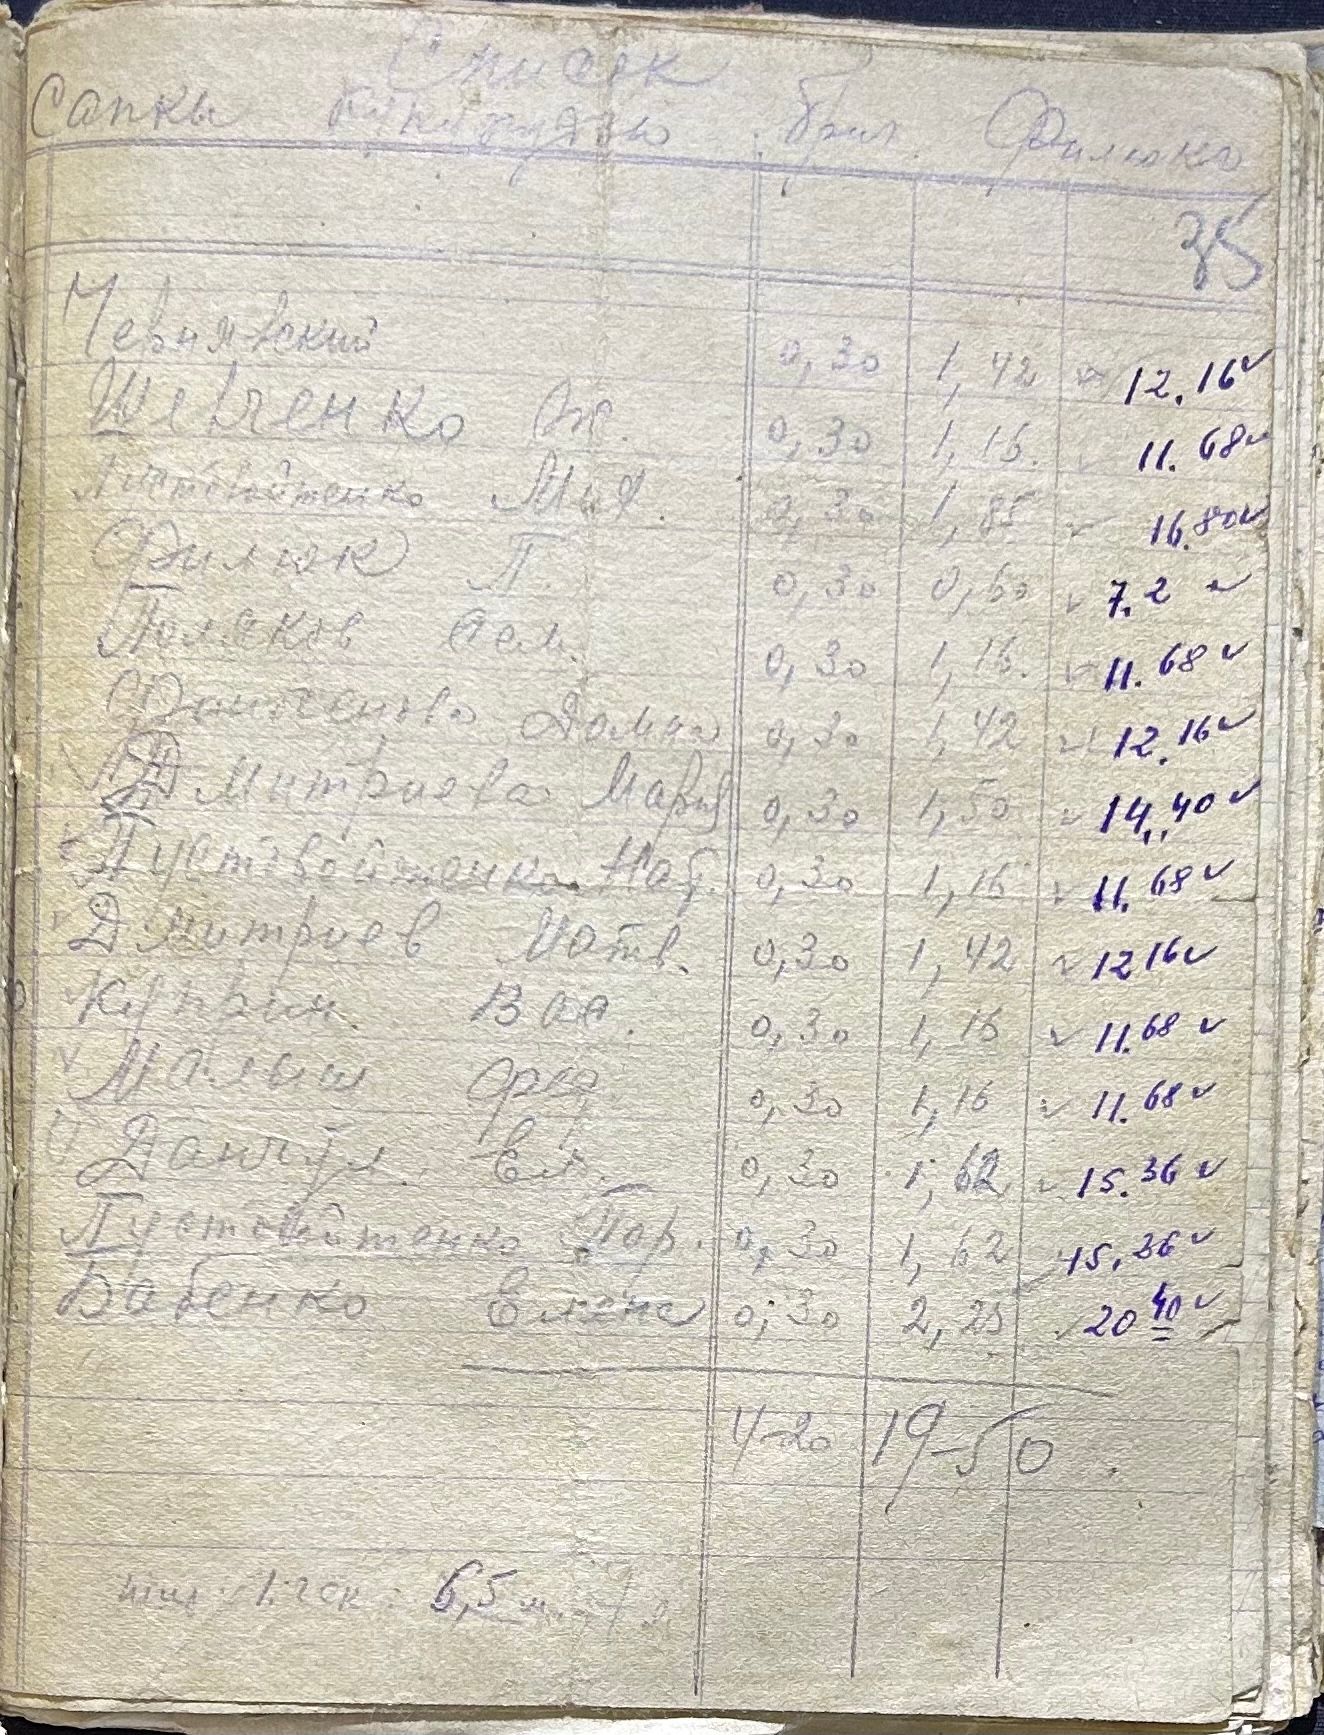 Список
Сапкы кукурузы бриг. Филюка
35
Чернявский 0,30 1,42 12.16
Шевченко 0,30 1,16 11.68
Пустовойтенко Мих. 0,30 1,85 16.80
Филюк П. 0,30 0,60 7.2
Поляков Сем. 0,30 1,16 11.68
Домна 0,30 1,42 12.16
Дмитриева Мария 0,30 1,50 14.40
Пустовойтенко Нат. 0,30 1,16 11.68
Дмитриев Матв. 0,30 1,42 12 16
Куприн Вас. 0,30 1,16 11.68
Малыш 0,30 1,16 11.68
Данчул Ел. 0,30 1,62 15.36
Пустовойтенко Пар. 0,30 1,62 15.36
Бабенко Елена 0,30 2,25 20 40
4-20 19-50
6,5